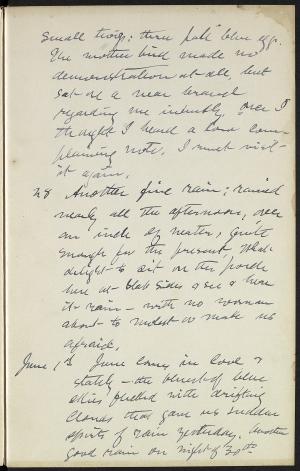 small twigs; three pale blue eggs.
The mother bird made no
demonstration at all, but
sat on a near branch
regarding me intently, over I
thought I heard a low com-
plaining note. I must visit
it again.
28 Another fine rain; rained
nearly all the afternoon, over
an inch of water, quite
enough for the present. What
delight to sit on the porch
here at Slab Sides & see & hear
it rain - with no woman
about to molest or make us
afraid.
June 1st June comes in cool &
stately - the bluest of blue
skies filled with drifting
clouds that gave us sudden
spirts of rain yesterday. Another
good rain on night of 30th